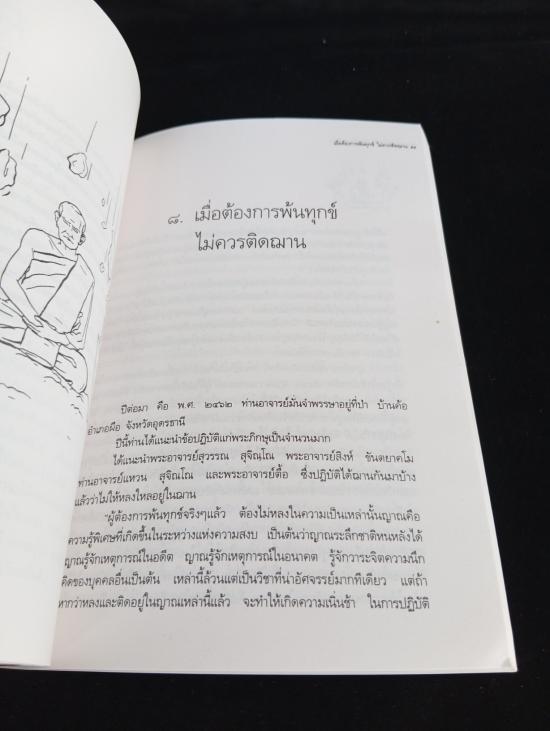 เมื่อต้องการพ้นทุกข์ ไม่ควรติดฌาน
๘. เมื่อต้องการพ้นทุกข์
ไม่ควรติดฌาน
ปีต่อมา คือ พ.ศ. ๒๔๖๒ ท่านอาจารย์มั่นจำพรรษาอยู่ที่ป่า บ้านค้อ
อำเภอผือ จังหวัดอุดรธานี
ปีนี้ท่านได้แนะนำข้อปฏิบัติแก่พระภิกษุเป็นจำนวนมาก
ได้แนะนำพระอาจารย์สุวรรณ สุจิณฺโณ พระอาจารย์สิงห์ ขันตยาคโม
ท่านอาจารย์แหวน สุจิณฺโณ และพระอาจารย์ตื้อ ซึ่งปฏิบัติได้ฌานกันมาบ้าง
แล้วว่าไม่ให้หลงใหลอยู่ในฌาน
"ผู้ต้องการพ้นทุกข์จริงๆแล้ว ต้องไม่หลงในความเป็นเหล่านั้นญาณคือ
ความรู้พิเศษที่เกิดขึ้นในระหว่างแห่งความสงบ เป็นต้นว่าญาณระลึกชาติหนหลังได้
ญาณรู้จักเหตุการณ์ในอดีต ญาณรู้จักเหตุการณ์ในอนาคต รู้จักวาระจิตความนึก
คิดของบุคคลอื่นเป็นต้น เหล่านี้ล้วนแต่เป็นวิชาที่น่าอัศจรรย์มากทีเดียว แต่ถ้า
หากว่าหลงและติดอยู่ในญาณเหล่านี้แล้ว จะทำให้เกิดความเนิ่นช้า ในการปฏิบัติ